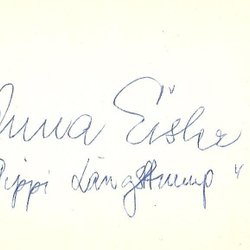 Anna Eiske
Pippi Langstrump"